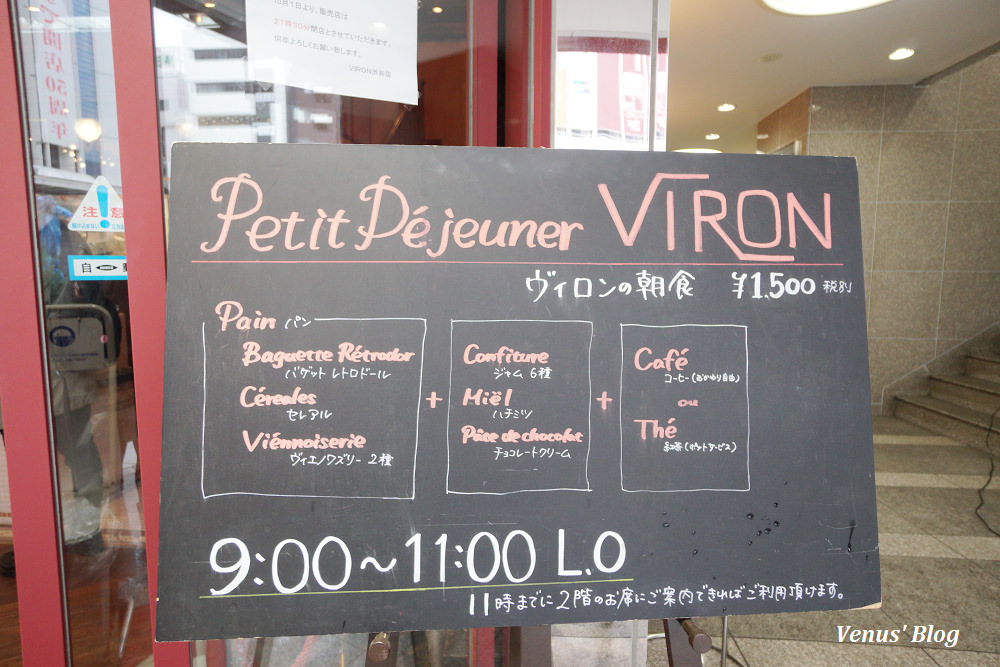 10月1日より、販売店は
21時30分閉店とさせていただきます。
何卒よろしくお願い致します。
VIRON渋谷店
開店50周年
注意
自動
Petit Déjeuner VIRON
ヴィロンの朝食 ¥1.500 税別
Pain パン
Baguette Rétrodor
バゲット レトロドール
Céreales
セレアル
Viénnoiserie
ヴィエノワズリー 2種
+
Confiture
ジャム 6種
Miël
ハチミツ
Pâte de chocolat
チョコレートクリーム
+
Café
コーヒー(おかわり自由)
ou
Thé
紅茶(ポットサービス)
9:00~11:00 L.O
11時までに2階のお席にご案内できればご利用頂けます。
Venus' Blog